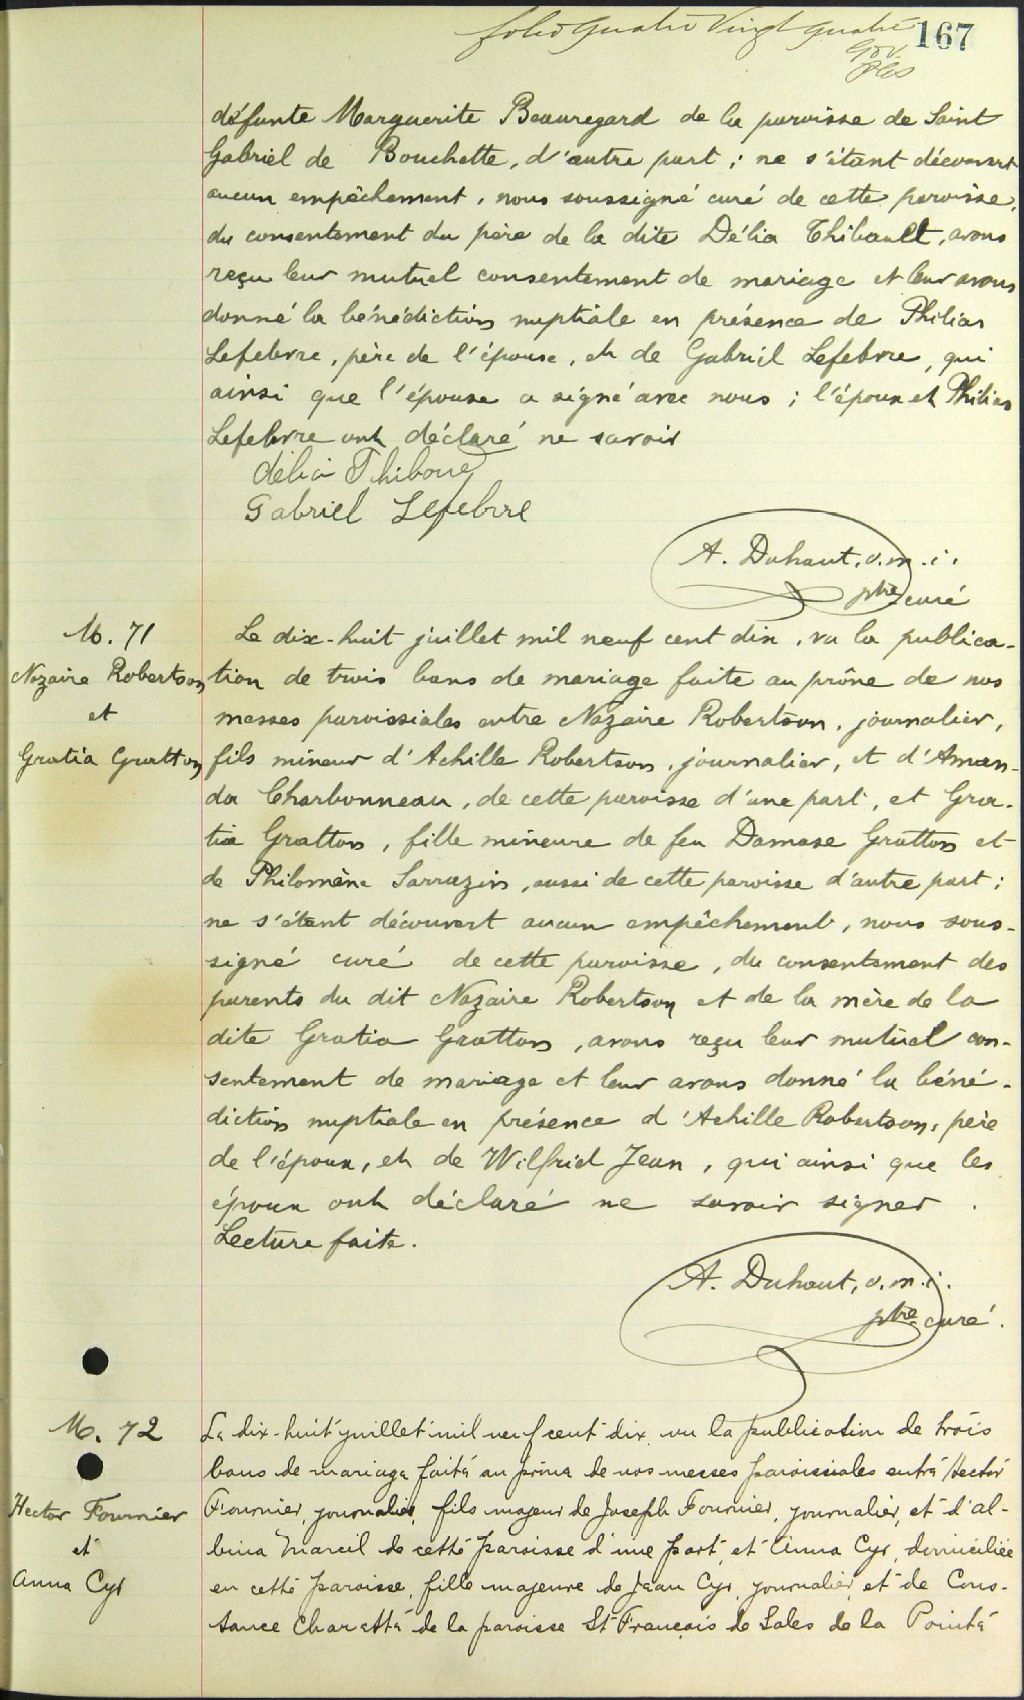 folio Quatre Vingt Quatre
167
défunte Marguerite Beauregard de la paroisse de Saint
Gabriel de Bouchette, d'autre part ; ne s'étant découvert
aucun empêchement, nous soussigné curé de cette paroisse,
du consentement du père de la dite Délia Thibault, avons
reçu leur mutuel consentement de mariage et leur avons
donné la bénédiction nuptiale en présence de Philias
Lefebvre, père de l'épouse, et de Gabriel Lefebvre, qui
ainsi que l'épouse a signé avec nous ; l'époux et Philias
Lefebvre ont déclaré ne savoir
délia Thibour
Gabriel Lefebvre
A. Duhaut, o.m.i.
ptre curé
M. 71
Nazaire Robertson
et
Gratia Gratton
Le dix-huit juillet mil neuf cent dix, vu la publica-
tion de trois bans de mariage faite au prône de nos
messes paroissiales entre Nazaire Robertson, journalier,
fils mineur d'Achille Robertson, journalier, et d'Aman-
da Charbonneau, de cette paroisse d'une part, et Gra-
tia Gratton, fille mineure de feu Damase Gratton et
de Philomène Sarrazin, aussi de cette paroisse d'autre part ;
ne s'étant découvert aucun empêchement, nous sous-
signé curé de cette paroisse, du consentement des
parents du dit Nazaire Robertson et de la mère de la
dite Gratia Gratton, avons reçu leur mutuel con-
sentement de mariage et leur avons donné la béné-
diction nuptiale en présence d'Achille Robertson, père
de l'époux, et de Wilfrid Jean, qui ainsi que les
époux ont déclaré ne savoir signer.
Lecture faite.
A. Duhaut, o.m.i.
ptre curé.
M. 72
Hector Fournier
et
Anna Cyr
Le dix-huit juillet mil neuf cent dix vu la publication de trois
bans de mariage faite au prône de nos messes paroissiales entre Hector
Fournier, journalier, fils majeur de Joseph Fournier, journalier, et d'al-
bina Marcil de cette paroisse d'une part, et Anna Cyr, domiciliée
en cette paroisse, fille majeure de Jean Cyr, journalier, et de Cons-
tance Charette de la paroisse St François de Sales de la Pointe